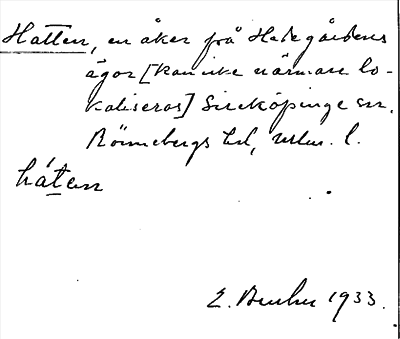 Hatten, en åker på Hedegårdens
ägor [kan icke närmare lo-
kaliseras] Sireköpinge sn.
Rönnebergs hd, Malm. l.
háten
E. 1933.